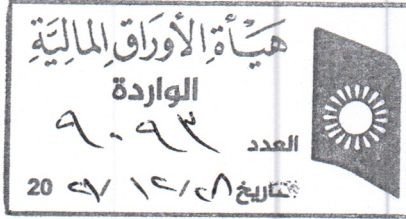 هَيْأَةِ الأَوْرَاقِ المَالِيَّةِ
الواردة
العدد ٩٠٩٣
بتاريخ 20